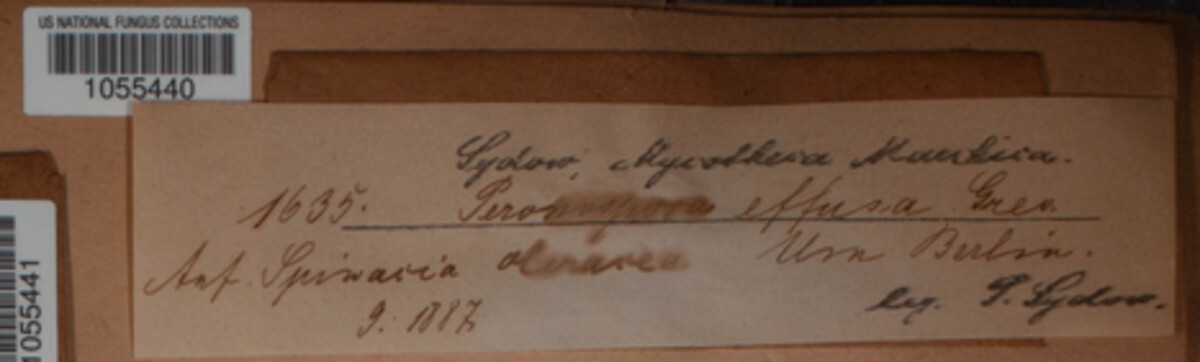 US NATIONAL FUNGUS COLLECTIONS
1055440
Sydow, Mycotheca Marchica.
1635. Peronospora effusa Grev.
Auf Spinacia oleracea Um Berlin.
9. 1887 leg. P. Sydow.
1055441